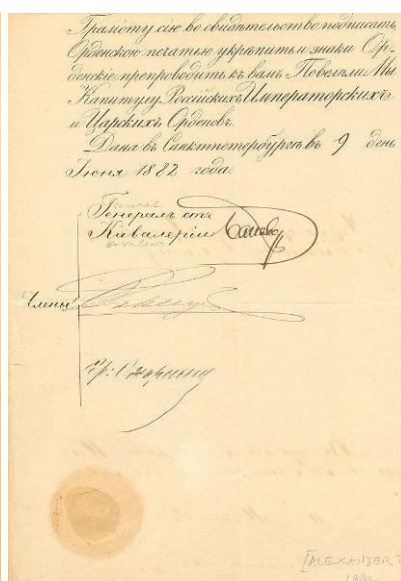 Грамоту сію во свидѣтельство подписать,
Орденскою печатью укрѣпить и знаки Ор-
денскіе препроводить къ вамъ Повелѣли Мы
Капитулу Россійскихъ Императорскихъ
и Царскихъ Орденовъ.
Дана въ Санктпетербургѣ въ 9 день
Іюня 1882 года.
General
Генералъ отъ
Кавалеріи
Члены:
Гр:
[ALEXANDER